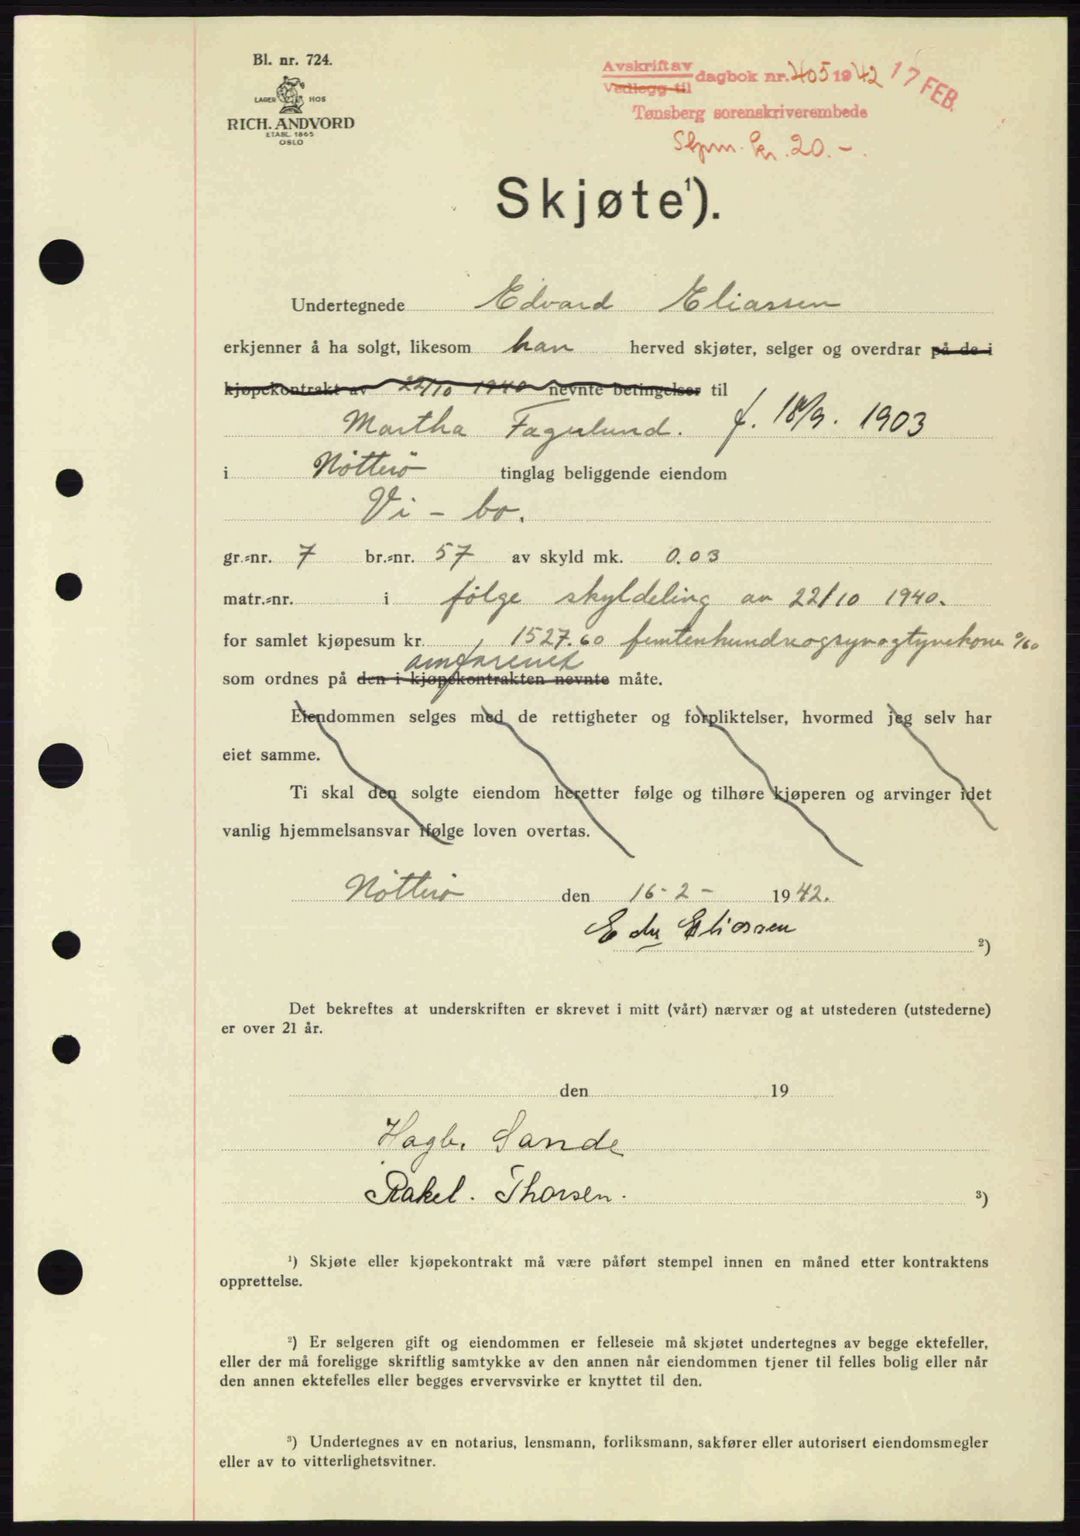 Bl. nr. 724.
LAGER HOS
RICH. ANDVORD
ETABL. 1865
OSLO
Avskrift av
Vedlegg til dagbok nr. 405 1942 17 FEB.
Tønsberg sorenskriverembede
Stpm. kr. 20.-
Skjøte¹).
Undertegnede Edvard Eliassen
erkjenner å ha solgt, likesom han herved skjøter, selger og overdrar på de i
kjøpekontrakt av 22/10 1940 nevnte betingelser til
Martha Fagerlund. f. 18/9. 1903
i Nötterö tinglag beliggende eiendom
Vi - bo.
gr.-nr. 7 br.-nr. 57 av skyld mk. 0.03
matr.-nr. i følge skyldeling av 22/10 1940.
for samlet kjøpesum kr. 1527.60 femtenhundreogsyvogtyvekroner 0/60
omforenet
som ordnes på den i kjøpekontrakten nevnte måte.
Eiendommen selges med de rettigheter og forpliktelser, hvormed jeg selv har
eiet samme.
Ti skal den solgte eiendom heretter følge og tilhøre kjøperen og arvinger idet
vanlig hjemmelsansvar ifølge loven overtas.
Nötterö den 16-2- 1942.
Edv Eliassen
²)
Det bekreftes at underskriften er skrevet i mitt (vårt) nærvær og at utstederen (utstederne)
er over 21 år.
den 19
Hagb. Sande
Rakel. Thorsen. ³)
¹) Skjøte eller kjøpekontrakt må være påført stempel innen en måned etter kontraktens
opprettelse.
²) Er selgeren gift og eiendommen er felleseie må skjøtet undertegnes av begge ektefeller,
eller der må foreligge skriftlig samtykke av den annen når eiendommen tjener til felles bolig eller når
den annen ektefelles eller begges ervervsvirke er knyttet til den.
³) Undertegnes av en notarius, lensmann, forliksmann, sakfører eller autorisert eiendomsmegler
eller av to vitterlighetsvitner.